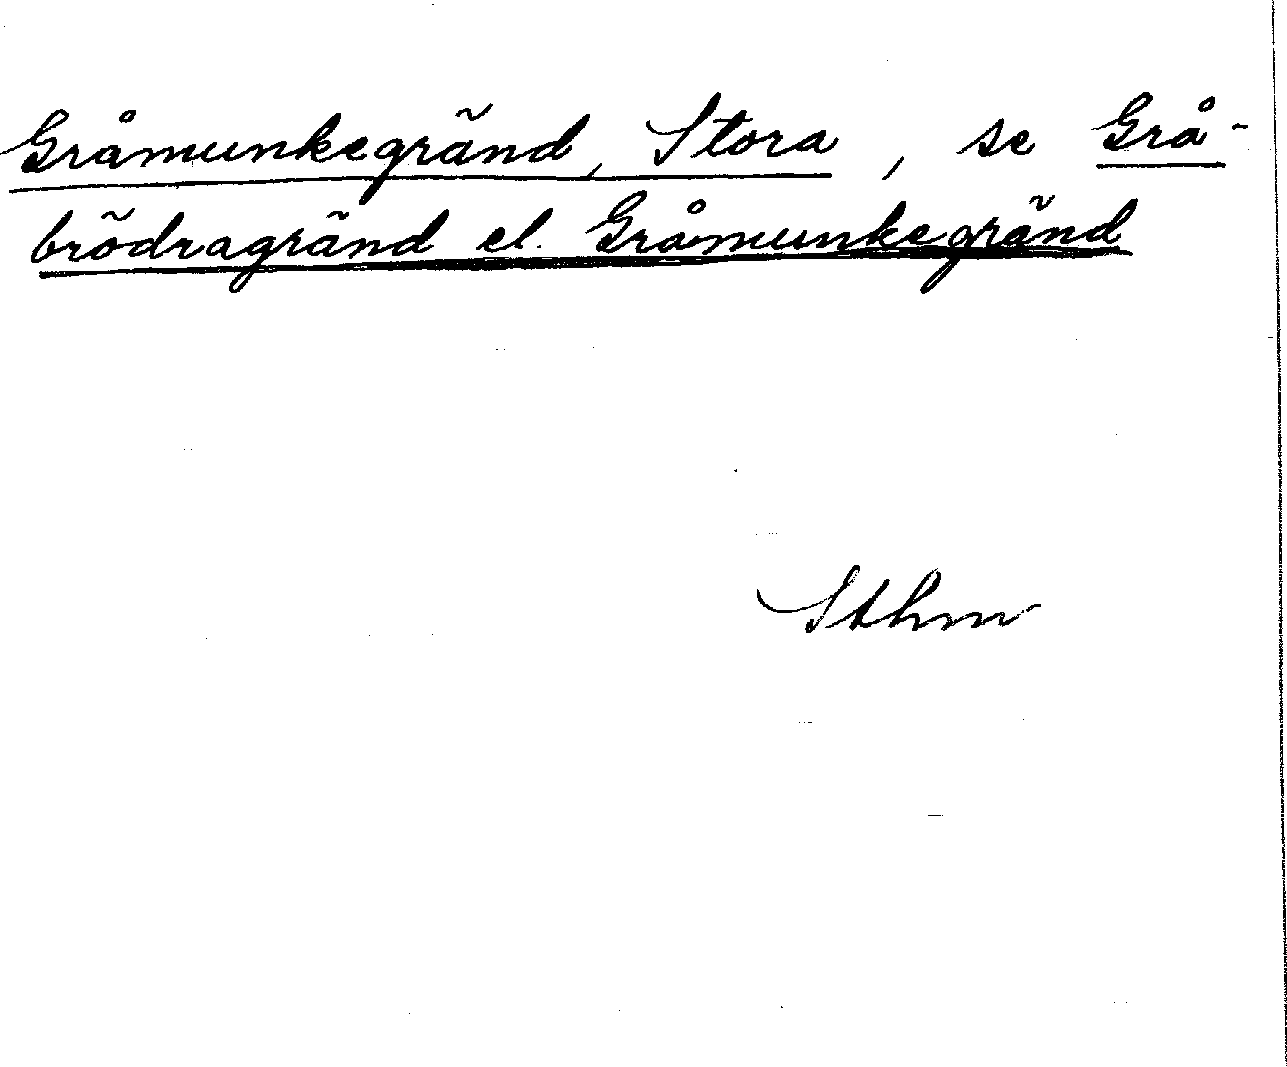 Gråmunkegränd, Stora, se Grå-
brödragränd el. Gråmunkegränd
Sthm